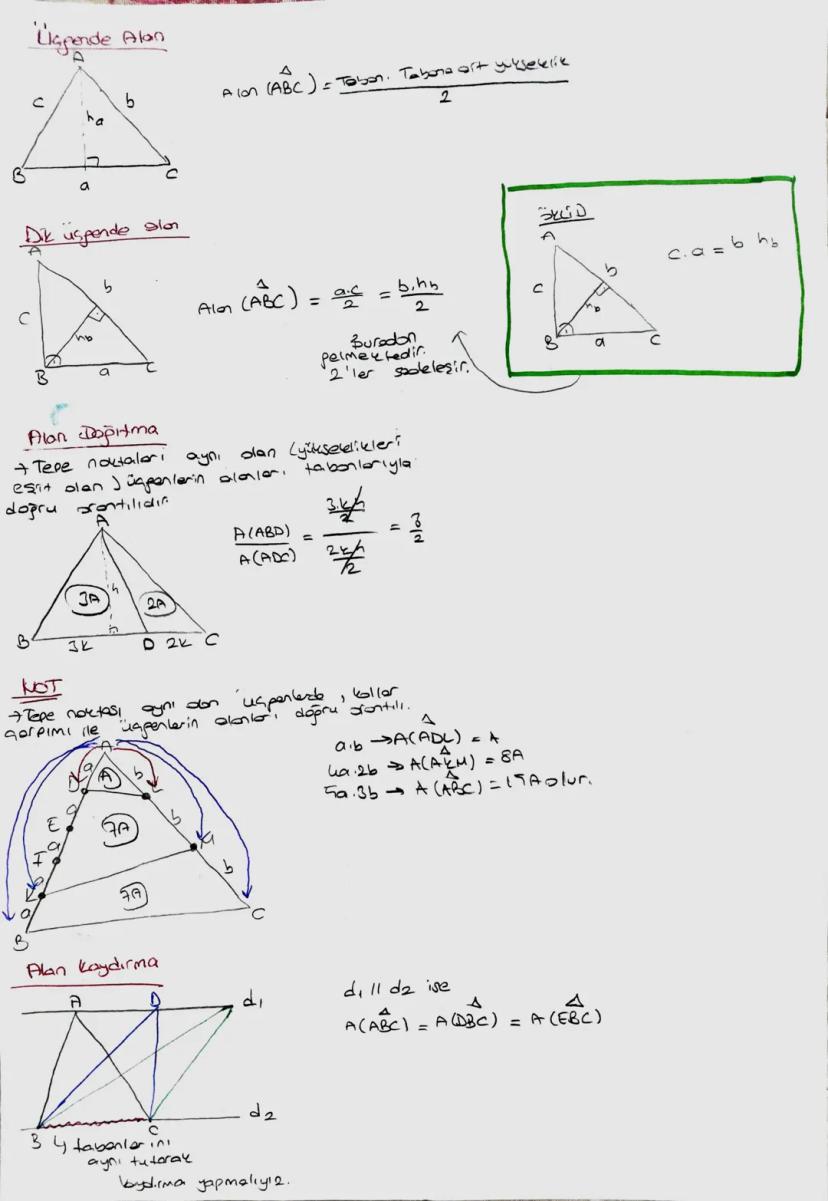 Üçgende Alan
A
c
b
ha
B
a
C
Alan (ABC) = Taban. Tabana ait yükseklik
2
Dik üçgende alan
A
c
b
hb
B
a
C
Alan (ABC) = a.c/2 = b.hb/2
Buradan
gelmektedir.
2'ler sadeleşir.
ÖKLİD
A
c
b
hb
B
a
C
c.a = b hb
Alan Dağıtma
→ Tepe noktaları aynı olan (yükseklikleri
eşit olan) üçgenlerin alanları, tabanlarıyla
doğru orantılıdır.
A
3A
h
2A
B
3k
D
2k
C
A(ABD)/A(ADC) = (3.k.h/2)/(2k.h/2) = 3/2
NOT
→ Tepe noktası aynı olan üçgenlerde, kollar
çarpımı ile üçgenlerin alanları doğru orantılı.
A
a
A
b
D
L
a
E
7A
b
a
I
M
a
K
7A
b
a
B
C
a.b → A(ADL) = A
4a.2b → A(AKM) = 8A
5a.3b → A(ABC) = 15A olur.
Alan Kaydırma
A
D
d1
B
C
d2
↳ tabanlarını
aynı tutarak
kaydırma yapmalıyız.
d1 // d2 ise
A(ABC) = A(DBC) = A(EBC)